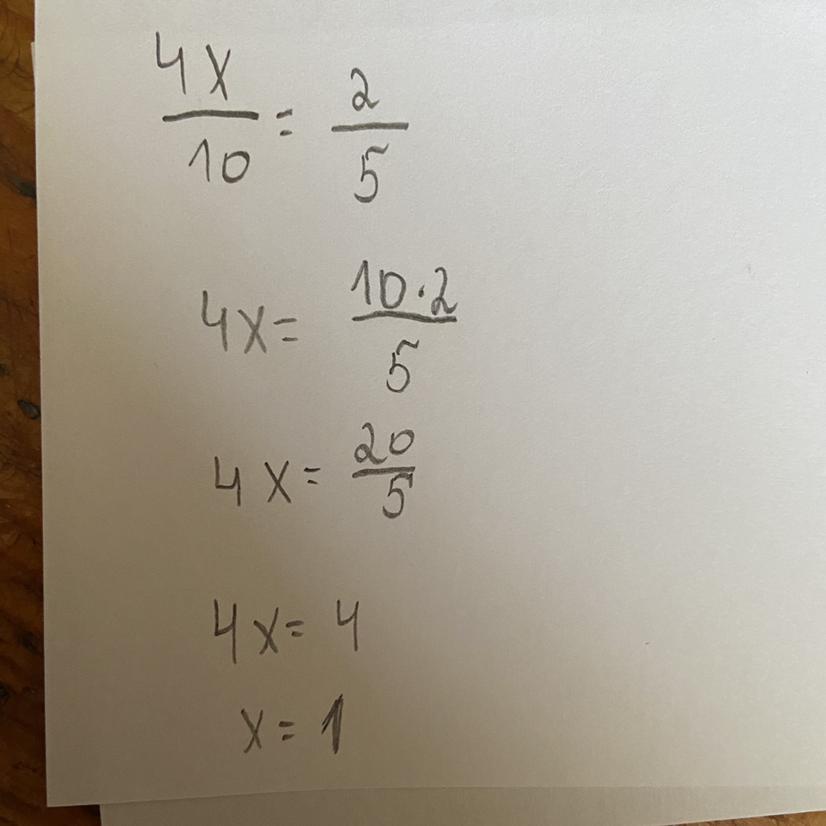 4x/10 = 2/5
4x = 10·2/5
4x = 20/5
4x = 4
x = 1